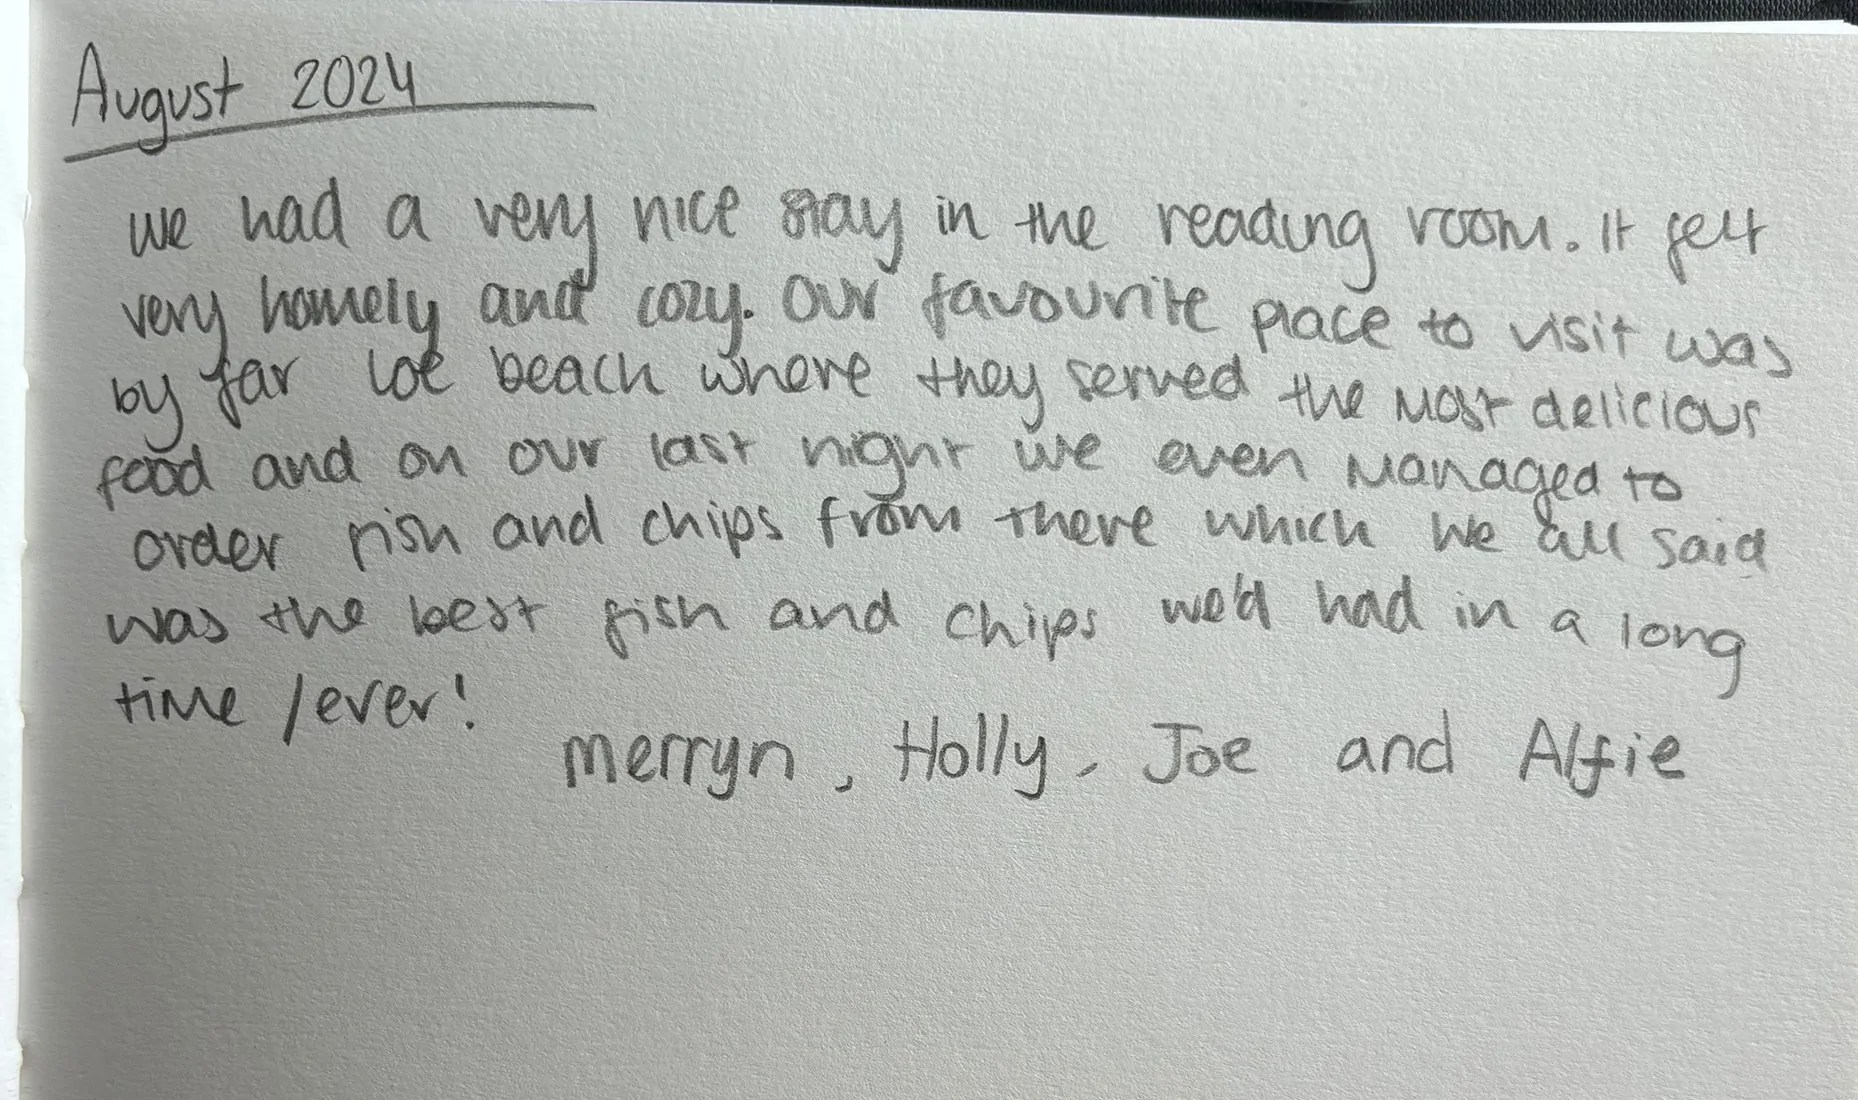 August 2024
we had a very nice stay in the reading room. It felt
very homely and cozy. Our favourite place to visit was
by far loe beach where they served the most delicious
food and on our last night we even managed to
order fish and chips from there which we all said
was the best fish and chips we'd had in a long
time /ever!
merryn, Holly, Joe and Alfie